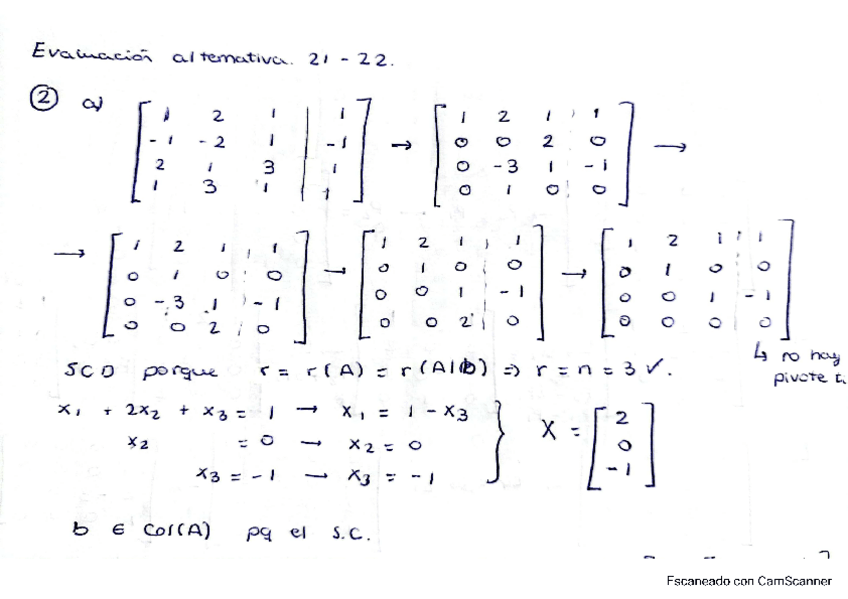 Evaluación alternativa. 21 - 22.
② a) [ 1 2 1 | 1 ] → [ 1 2 1 | 1 ] →
[ -1 -2 1 | -1 ] [ 0 0 2 | 0 ]
[ 2 1 3 | 1 ] [ 0 -3 1 | -1 ]
[ 1 3 1 | 1 ] [ 0 1 0 | 0 ]
→ [ 1 2 1 | 1 ] → [ 1 2 1 | 1 ] → [ 1 2 1 | 1 ]
[ 0 1 0 | 0 ] [ 0 1 0 | 0 ] [ 0 1 0 | 0 ]
[ 0 -3 1 | -1 ] [ 0 0 1 | -1 ] [ 0 0 1 | -1 ]
[ 0 0 2 | 0 ] [ 0 0 2 | 0 ] [ 0 0 0 | 0 ]
↳ no hay
pivote
SCD porque r = r(A) = r(A|b) ⇒ r = n = 3 ✓.
x₁ + 2x₂ + x₃ = 1 → x₁ = 1 - x₃
x₂ = 0 → x₂ = 0
x₃ = -1 → x₃ = -1
} X = [ 2
0
-1 ]
b ∈ Col(A) pq el S.C.
Escaneado con CamScanner